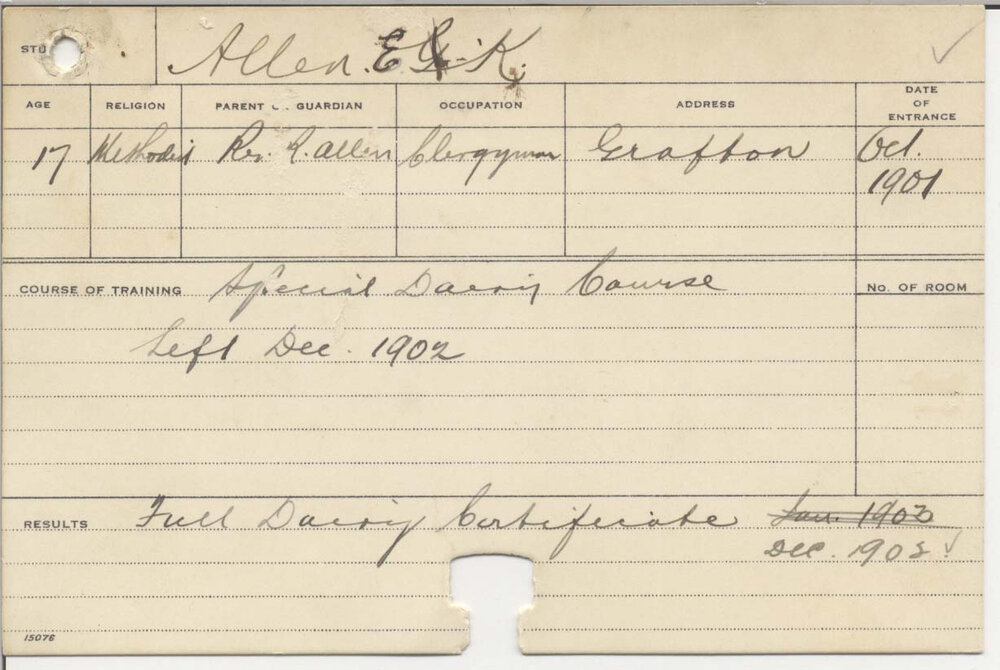 STU Allen. E. G. K.
AGE RELIGION PARENT OR GUARDIAN OCCUPATION ADDRESS DATE OF ENTRANCE
17 Methodist Rev. R. Allen Clergyman Grafton Oct. 1901
COURSE OF TRAINING Special Dairy Course No. OF ROOM
Left Dec. 1902
RESULTS Full Dairy Certificate Jan. 1903
Dec. 1902
15076